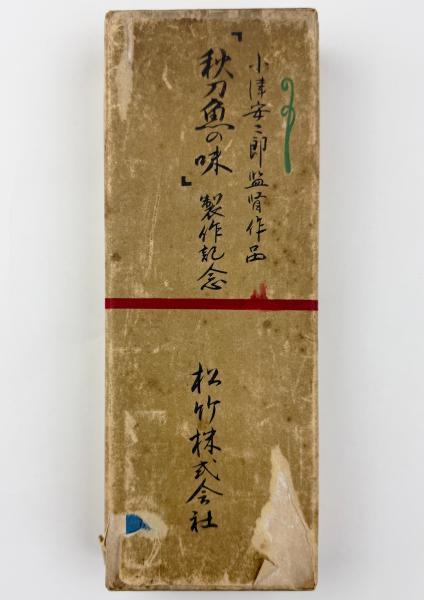 小津安二郎監督作品
『秋刀魚の味』製作記念
松竹株式会社